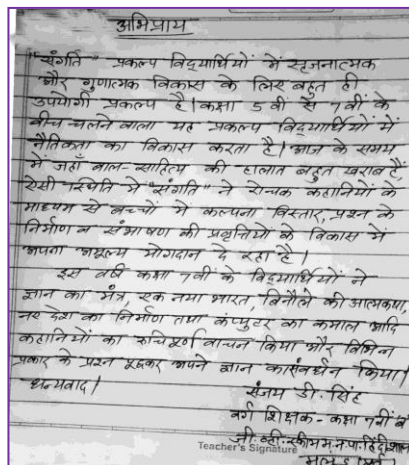 अभिप्राय
"संगति" प्रकल्प विद्यार्थियों में सृजनात्मक
और गुणात्मक विकास के लिए बहुत ही
उपयोगी प्रकल्प है। कक्षा 5 वीं से 7 वीं के
बीच चलने वाला यह प्रकल्प विद्यार्थियों में
नैतिकता का विकास करता है। आज के समय
में जहाँ बाल-साहित्य की हालात बहुत खराब हैं,
ऐसी स्थिति में "संगति" ने रोचक कहानियों के
माध्यम से बच्चों में कल्पना विस्तार, प्रश्न के
निर्माण व संभाषण की प्रवृत्तियों के विकास में
अपना अमूल्य योगदान दे रहा है।
इस वर्ष कक्षा 7वीं के विद्यार्थियों ने
ज्ञान का मंत्र, एक नया भारत, बिनौले की आत्मकथा,
नए देश का निर्माण तथा कंप्युटर का कमाल आदि
कहानियों का रुचिपूर्ण वाचन किया और विभिन्न
प्रकार के प्रश्न पूछकर अपने ज्ञान का संवर्धन किया।
धन्यवाद।
संजय डी. सिंह
वर्ग शिक्षक - कक्षा 7वीं ब
जी. व्ही. स्कीम म.न.पा. हिंदी शाला
Teacher's Signature